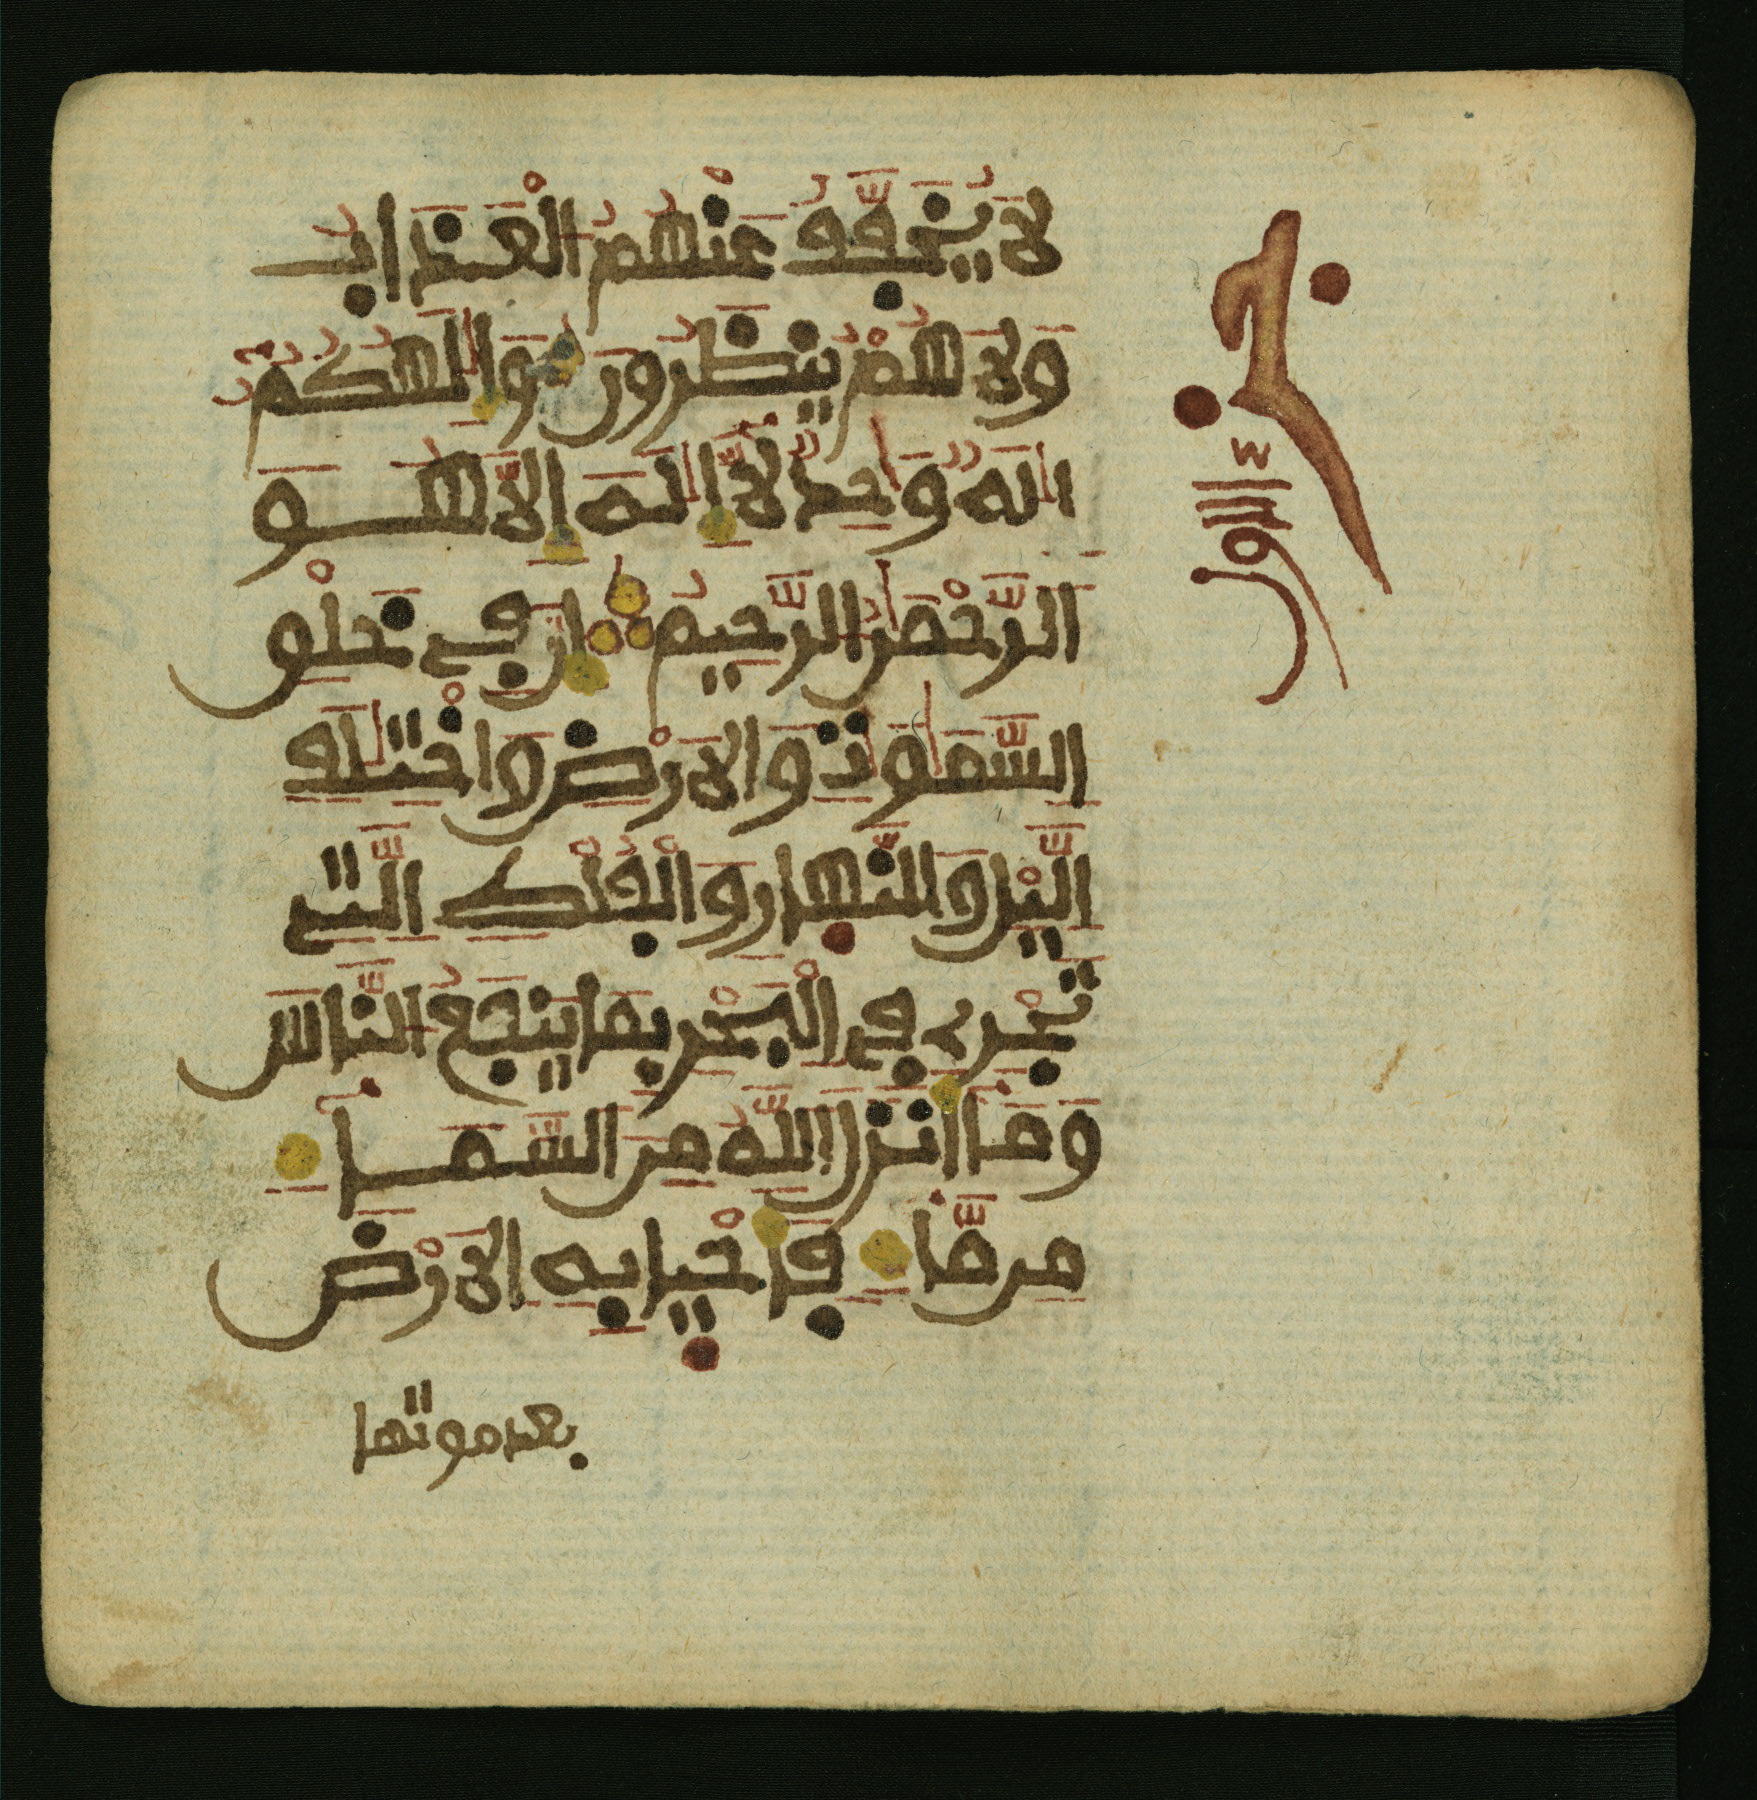 لَا يُخَفَّفُ عَنْهُمُ الْعَذَابُ
وَلَا هُمْ يُنظَرُونَ وَإِلَٰهُكُمْ
إِلَٰهٌ وَٰحِدٌ لَّا إِلَٰهَ إِلَّا هُوَ
الرَّحْمَٰنُ الرَّحِيمُ إِنَّ فِي خَلْقِ
السَّمَٰوَٰتِ وَالَارْضِ وَاخْتِلَٰفِ
الَّيْلِ وَالنَّهارِ وَالْفُلْكِ الَّتِي
تَجْرِي فِي الْبَحْرِ بِمَا يَنفَعُ النَّاسَ
وَمَا أَنزَلَ اللَّهُ مِنَ السَّمَاءِ
مِن مَّاءٍ فَأَحْيا بِهِ الَارْضَ
بعد موتها